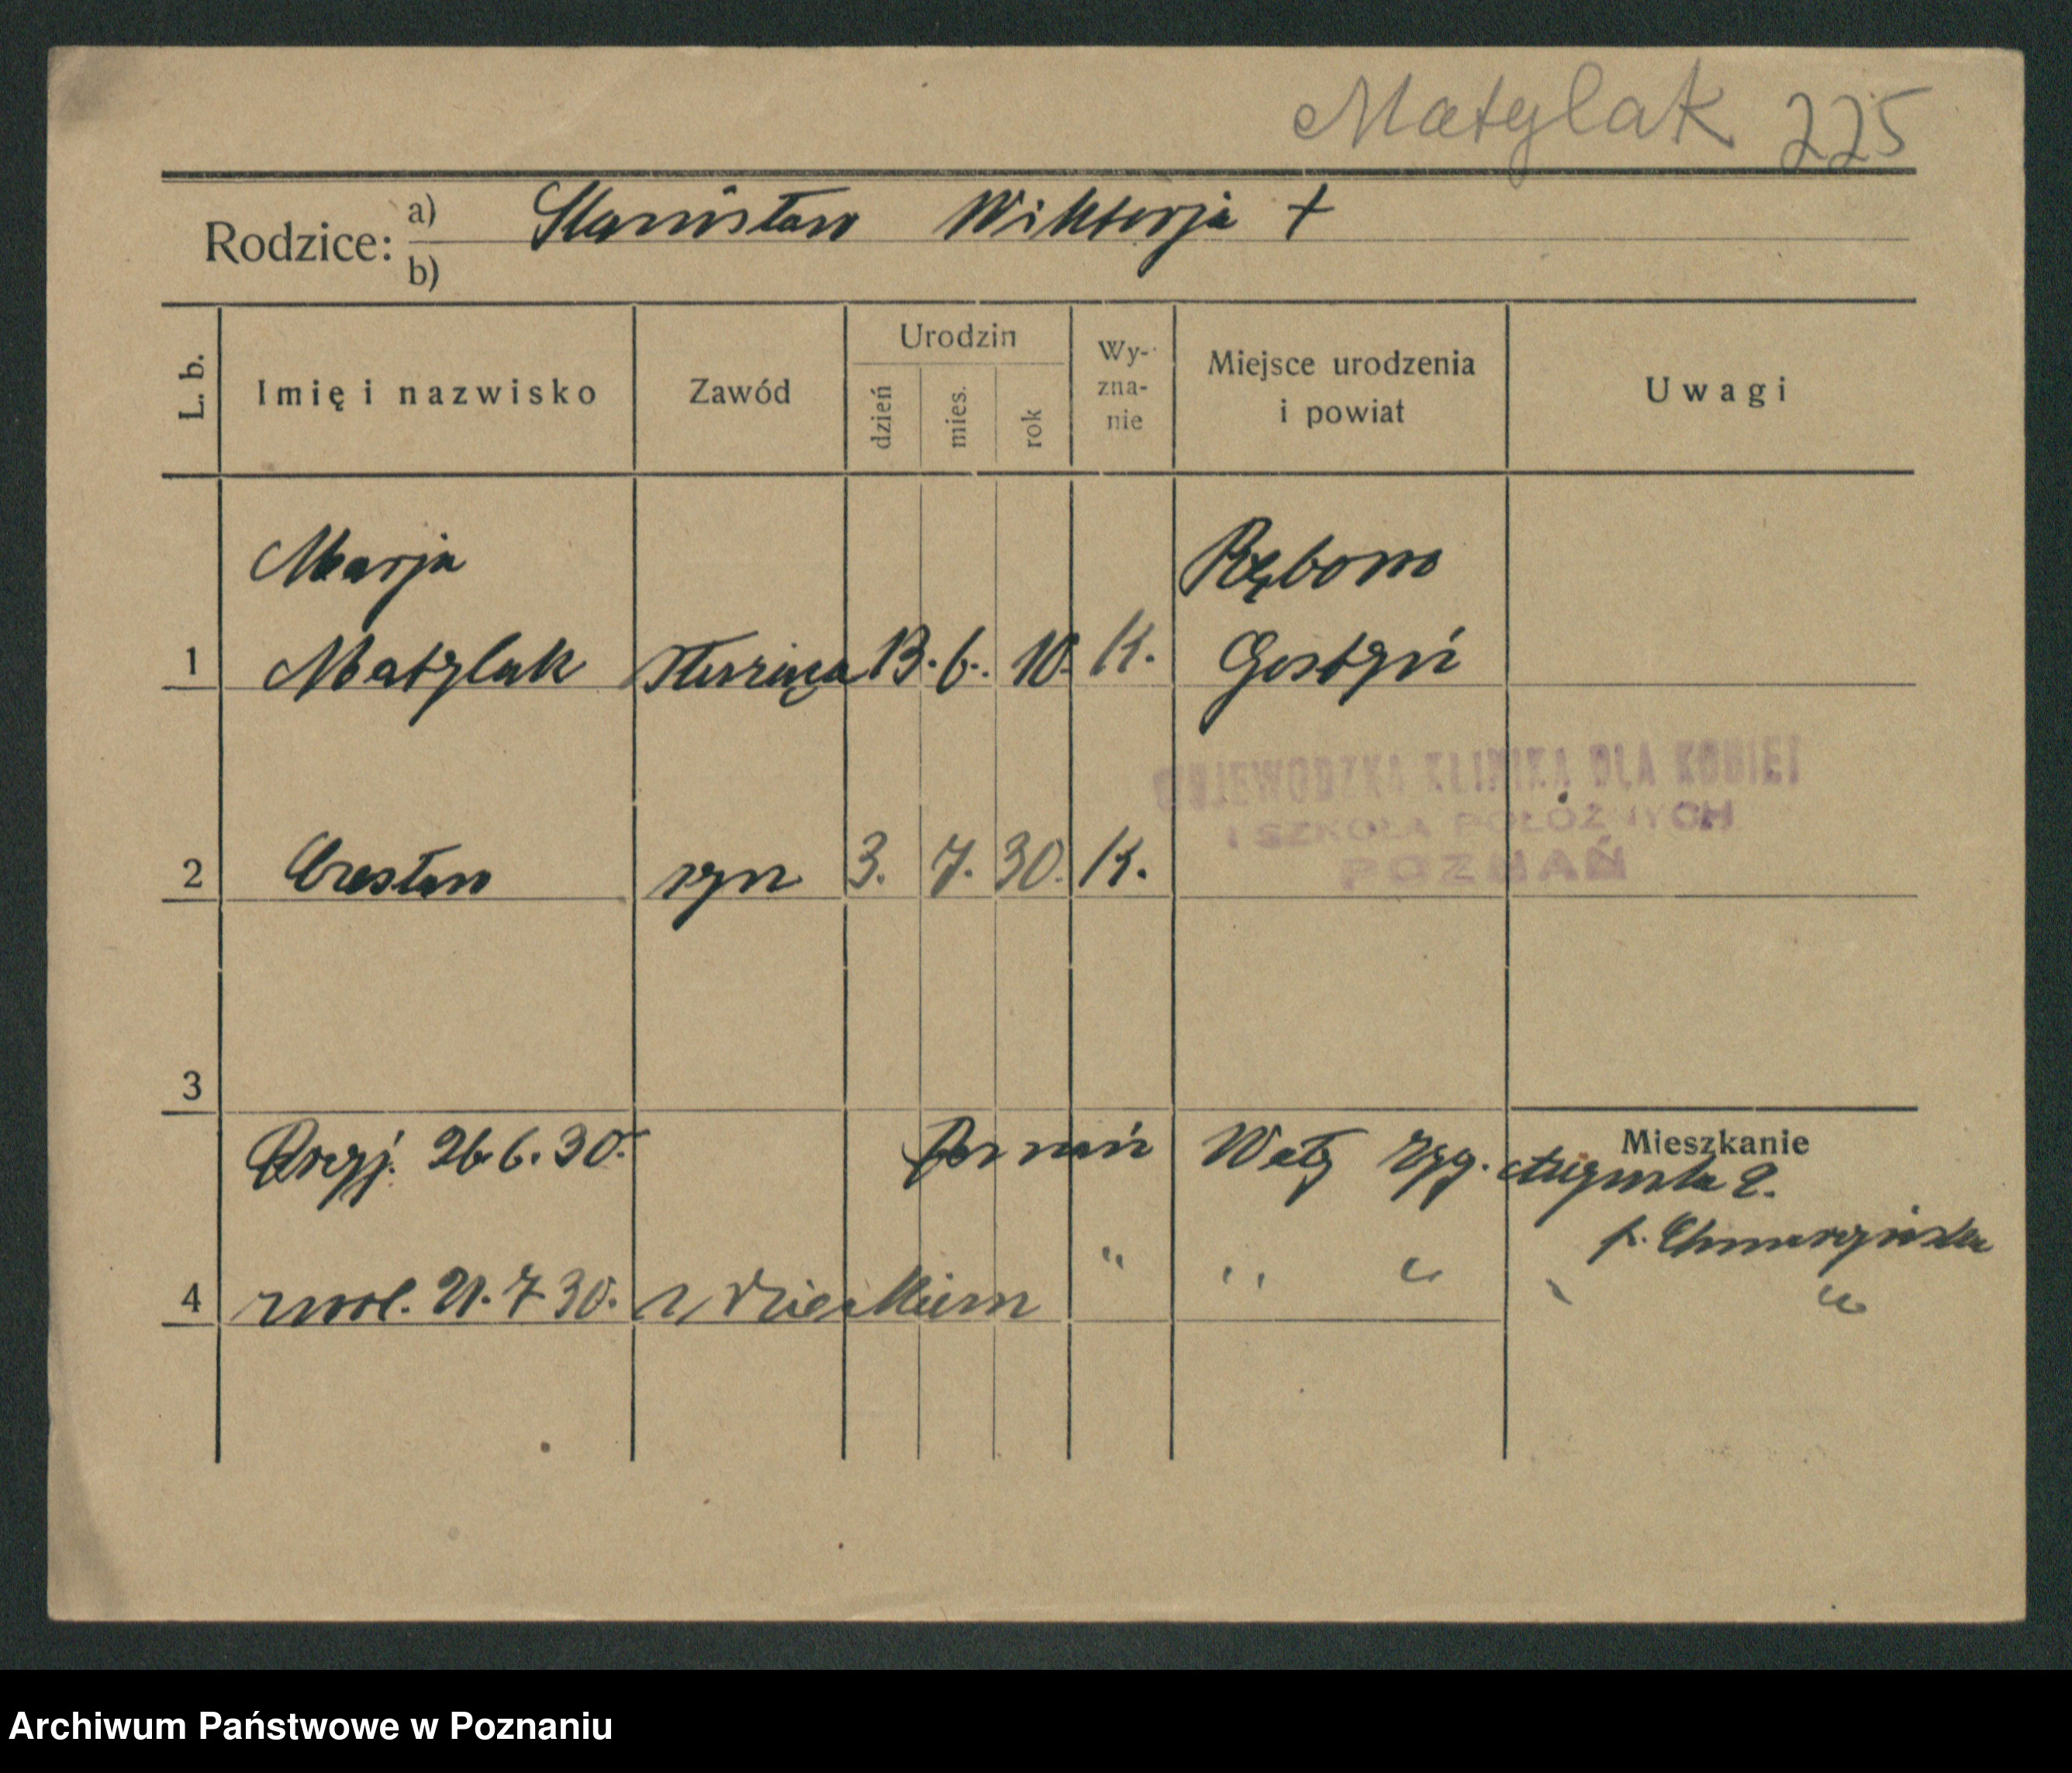 Matylak 225
Rodzice: a) Stanisław Wiktorja +
b)
L. b. Imię i nazwisko Zawód Urodzin dzień mies. rok Wy-zna-nie Miejsce urodzenia i powiat Uwagi
Marja Rębowo
1 Matylak służąca 13. 6. 10. K. Gostyń
WOJEWÓDZKA KLINIKA DLA KOBIET
I SZKOŁA POŁOŻNYCH
POZNAŃ
2 Czesław syn 3. 7. 30. K.
3
Mieszkanie
Przyj. 26.6.30. Poznań Wały Zyg. Augusta 2.
p.
4 zwol. 21.7.30. z dzieckiem " " " " "
Archiwum Państwowe w Poznaniu